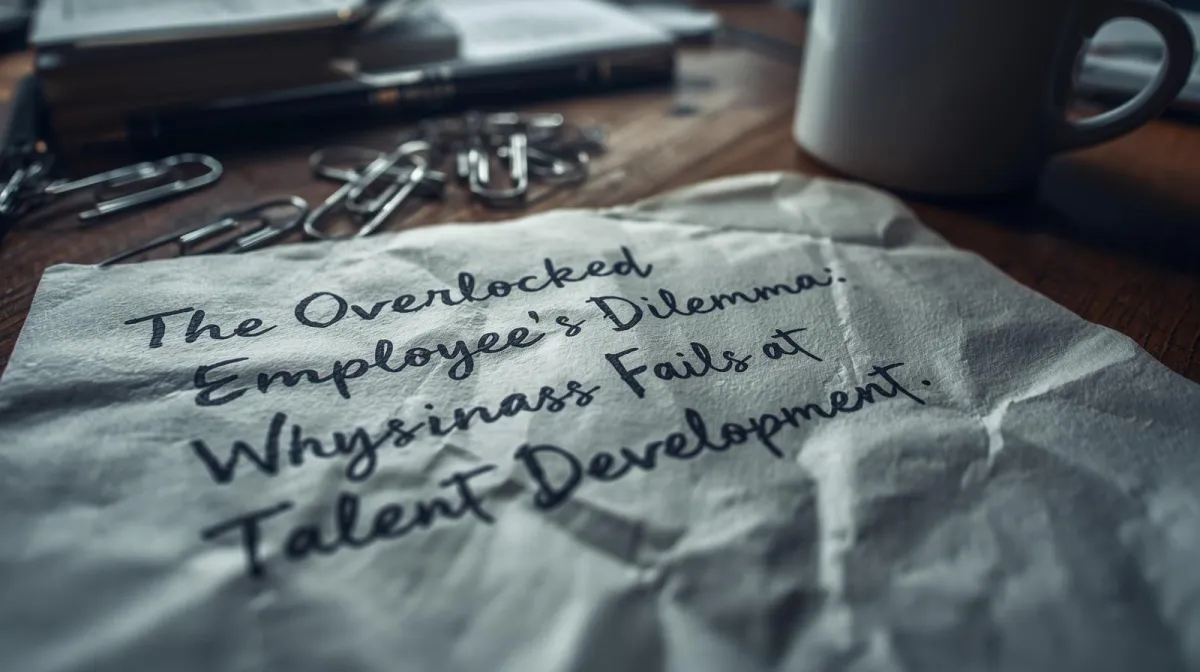 The Overlocked
Employee's Dilemma:
Whysinass Fails at
Talent Development.